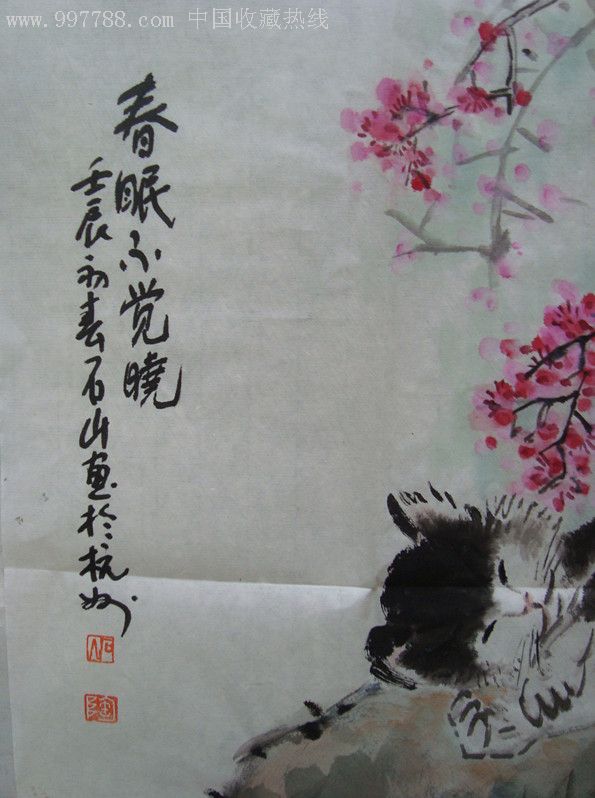 www.997788.com 中国收藏热线
春眠不觉晓
壬辰初春石山画於杭州